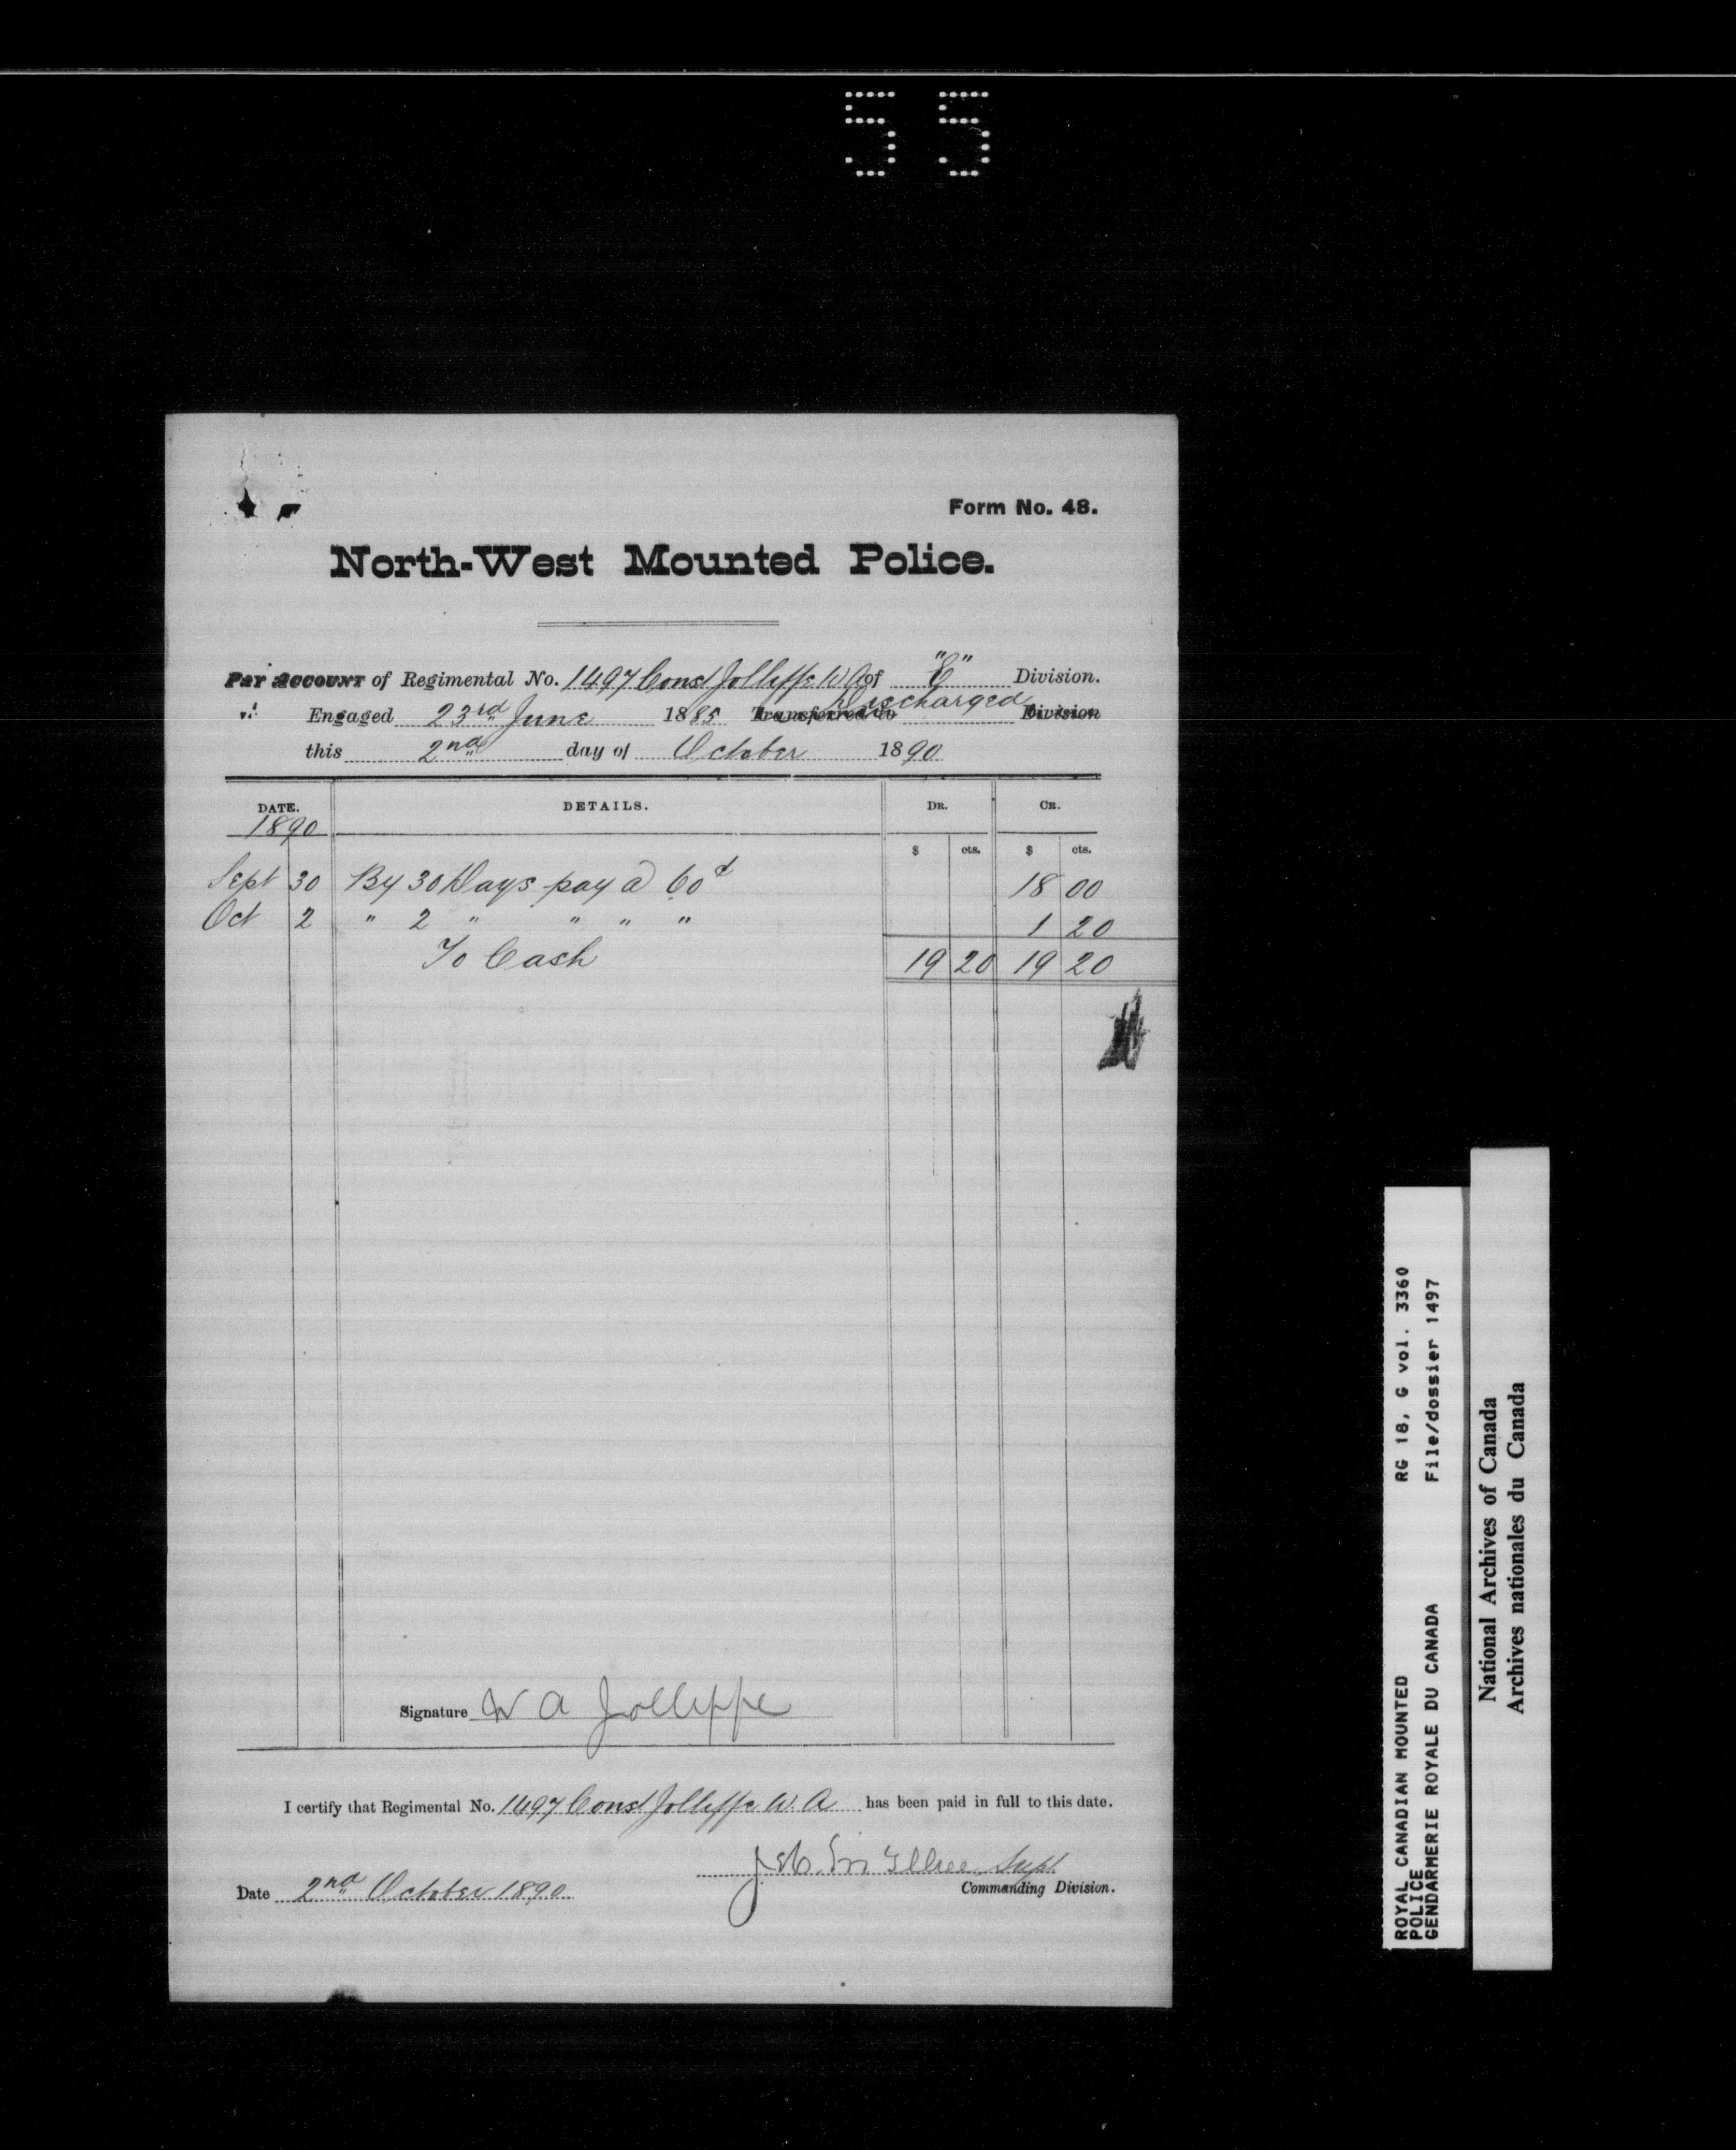 55
Form No. 48.
North-West Mounted Police.
Pay Account of Regimental No. 1497 Const Jolliffe W A of "E" Division.
Engaged 23rd June 1885 Transferred to Discharged Division
this 2nd day of October 1890
DATE. DETAILS. DR. CR.
1890
$ cts. $ cts.
Sept 30 By 30 Days pay @ 60¢ 18 00
Oct 2 " 2 " " " " 1 20
To Cash 19 20 19 20
Signature W A Jolliffe
I certify that Regimental No. 1497 Const Jolliffe W. A has been paid in full to this date.
Supt.
Date 2nd October 1890 Commanding Division.
ROYAL CANADIAN MOUNTED RG 18, G vol. 3360
POLICE
GENDARMERIE ROYALE DU CANADA File/dossier 1497
National Archives of Canada
Archives nationales du Canada